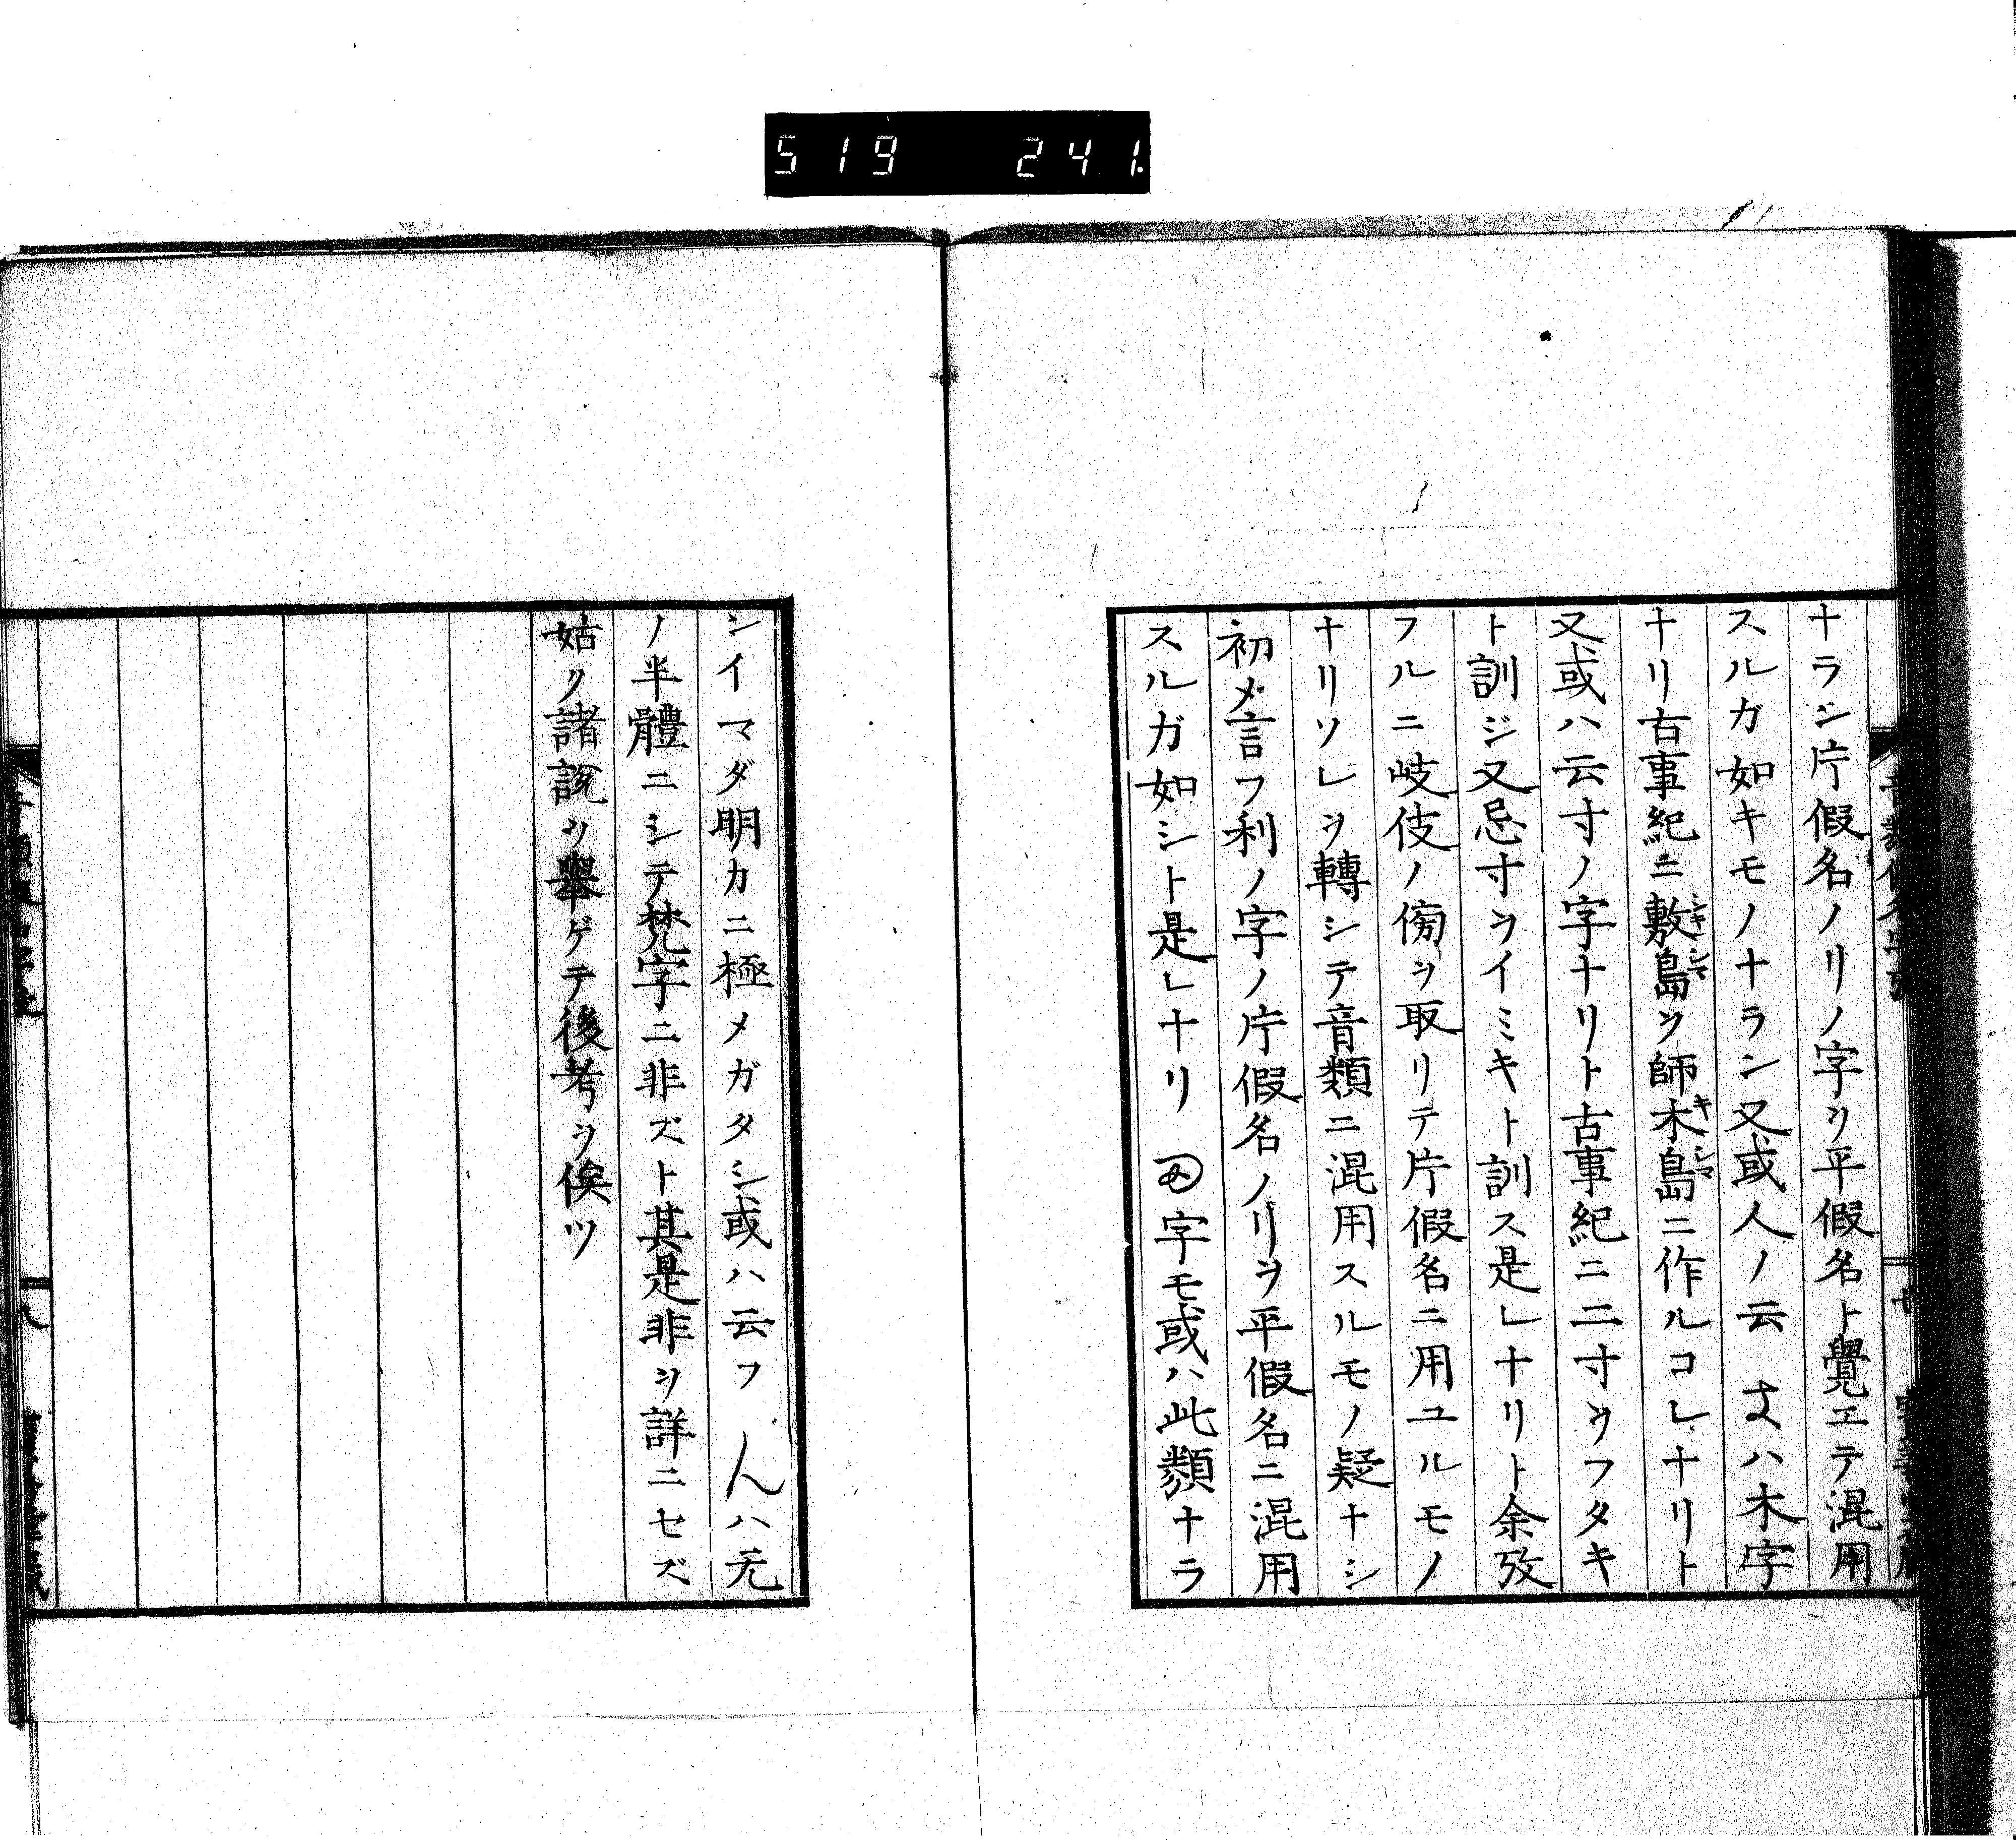 519 241.
ナラン片假名ノリノ字ヲ平假名ト覺エテ混用
スルガ如キモノナラン又或人ノ云 ハ木字
ナリ古事紀ニ敷島ヲ師木島ニ作ルコレナリト
シキシマ
キシマ
又或ハ云寸ノ字ナリト古事紀ニ二寸ヲフタキ
ト訓ジ又忌寸ヲイミキト訓ス是レナリト余攷
フルニ岐伎ノ傍ヲ取リテ片假名ニ用ユルモノ
ナリソレヲ轉シテ音類ニ混用スルモノ疑ナシ
初メ言フ利ノ字ノ片假名ノリヲ平假名ニ混用
スルガ如シト是レナリ 字モ或ハ此類ナラ
ンイマダ明カニ極メガタシ或ハ云フ んハ无
ノ半體ニシテ梵字ニ非ズト其是非ヲ詳ニセズ
姑ク諸説ヲ擧ゲテ後考ヲ俟ツ
十八